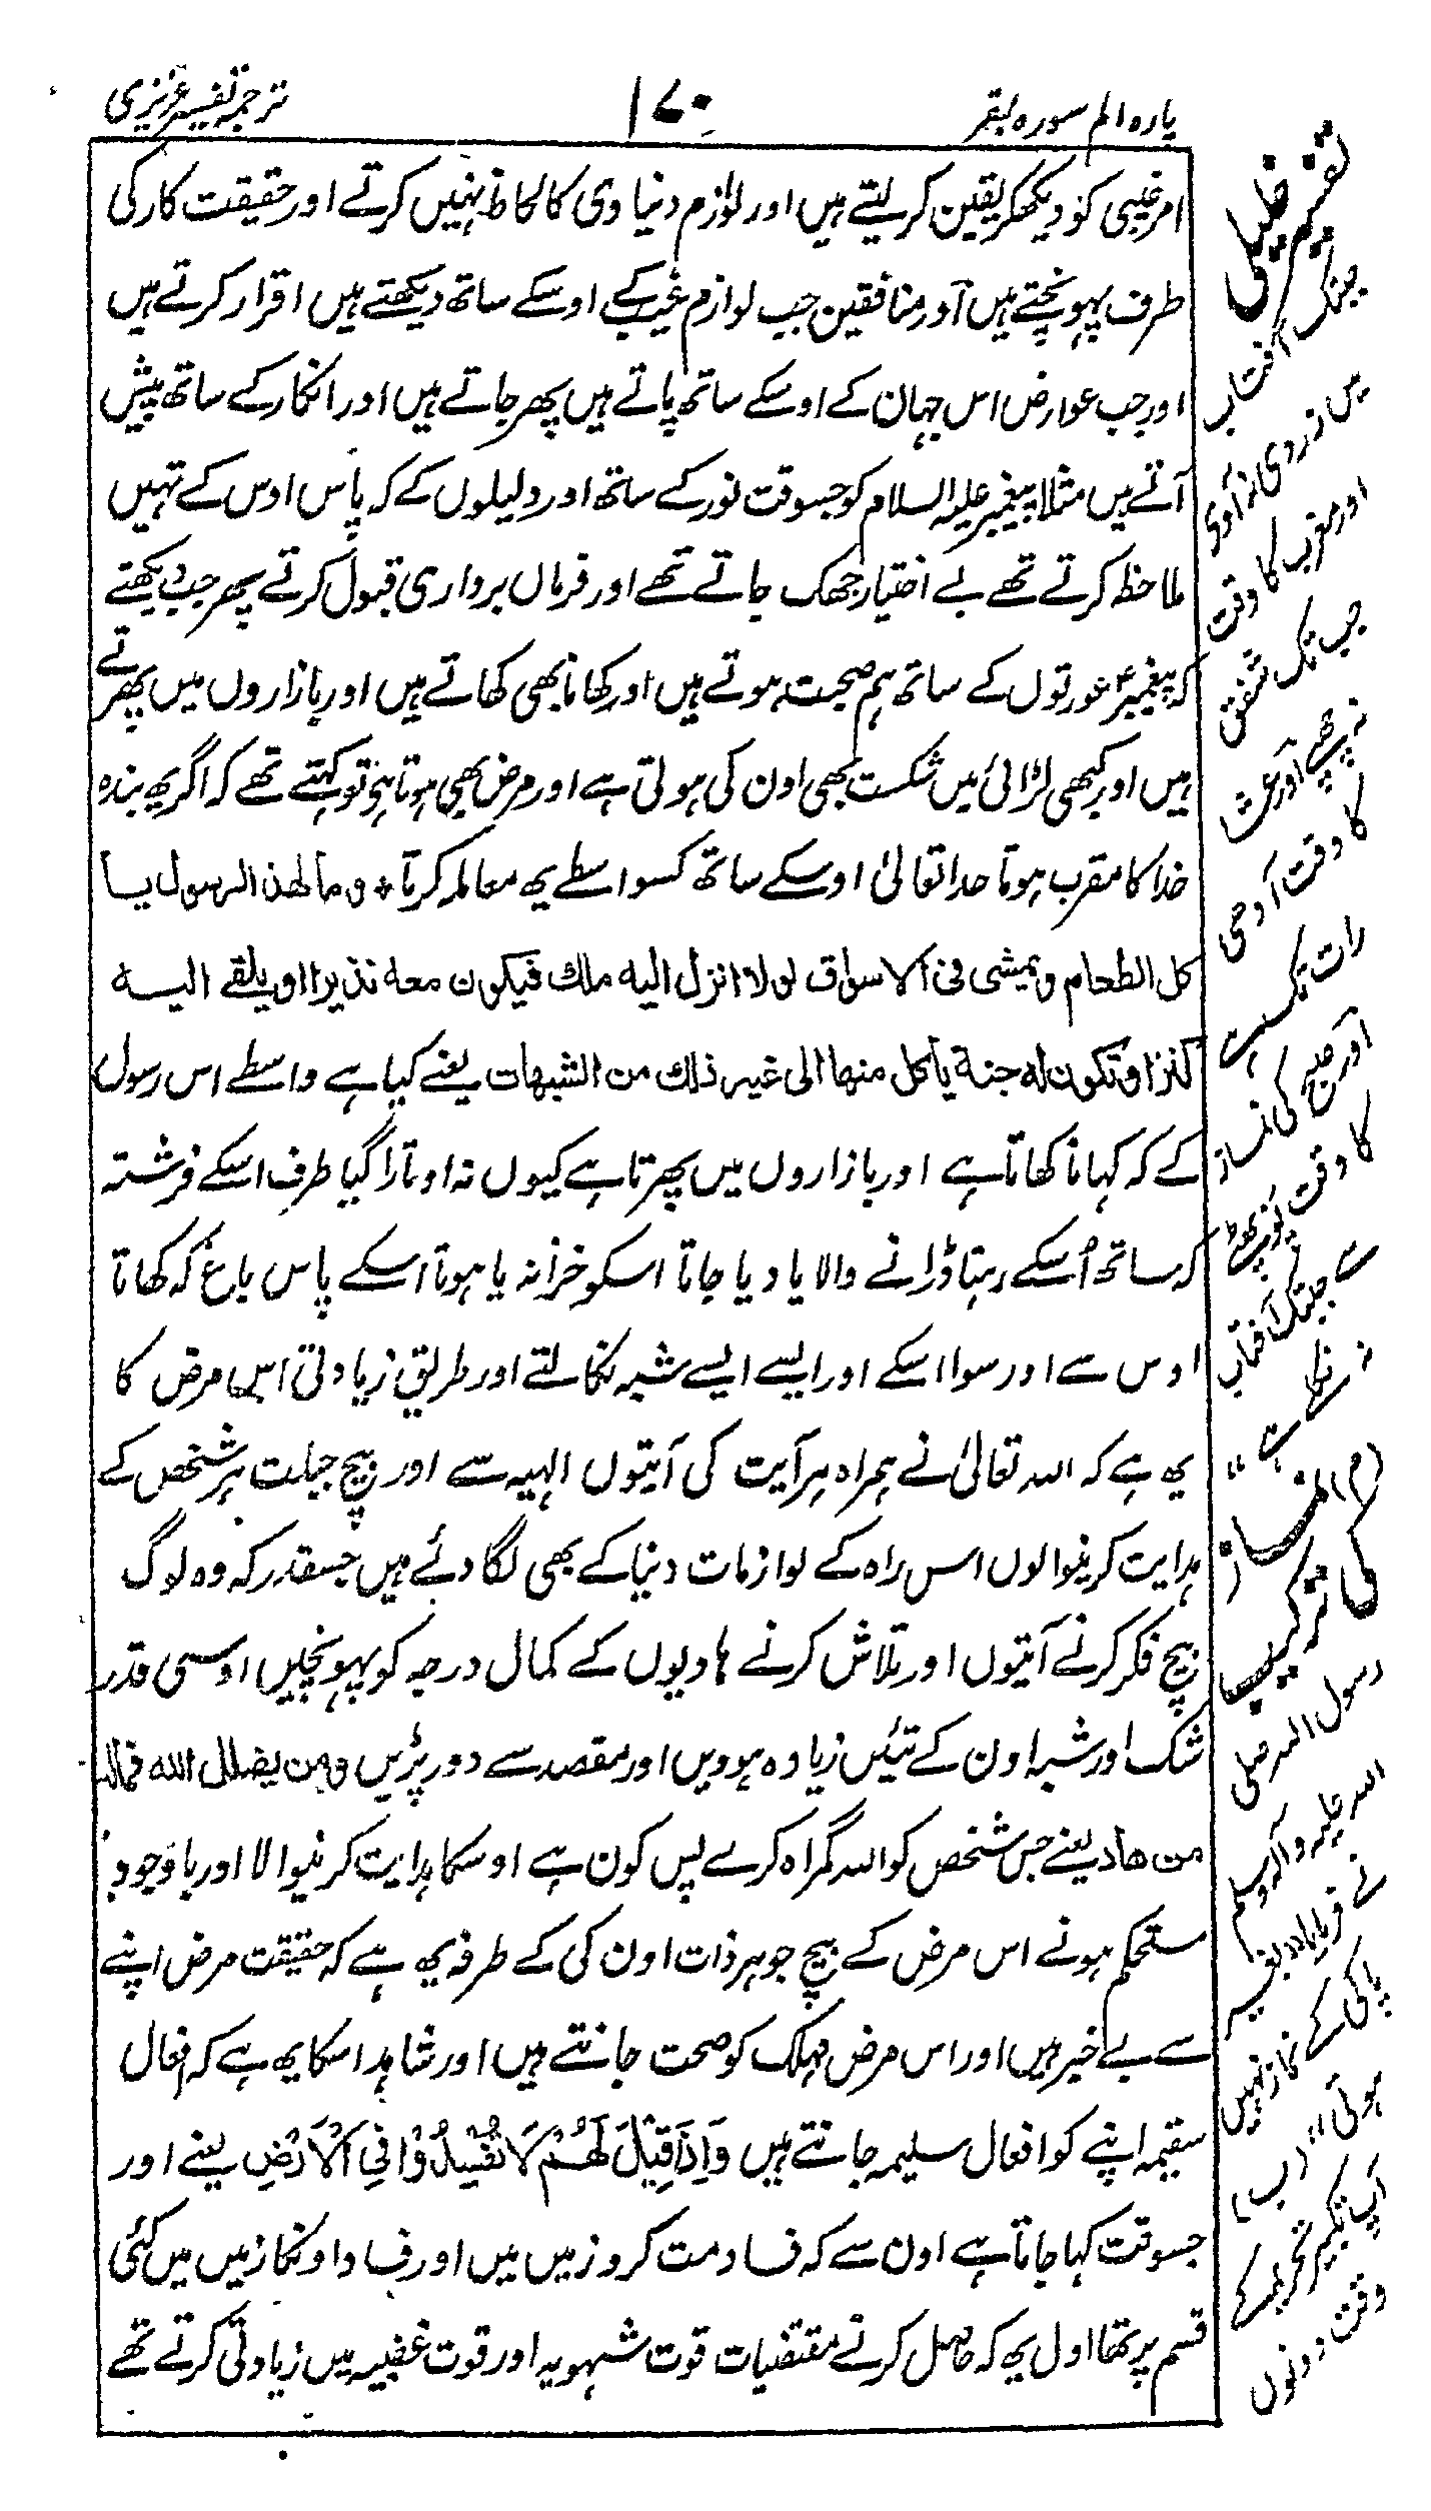 پارہ الم سورہ بقر
۱۷۰
ترجمہ تفسیر عزیزی
امر غیبی کو دیکھکر یقین کر لیتے ہیں اور لوازم دنیاوی کا لحاظ نہیں کرتے اور حقیقت کار کی
طرف پہونچتے ہیں اور منافقین جب لوازم غیب کے اوسکے ساتھ دیکھتے ہیں اقرار کرتے ہیں
اور جب عوارض اس جہان کے اوسکے ساتھ پاتے ہیں پھر جاتے ہیں اور انکار کے ساتھ پیش
آتے ہیں مثلا پیغمبر علیہ السلام کو جسوقت نور کے ساتھ اور دلیلوں کے کہ پاس اوس کے تہیں
ملاحظہ کرتے تھے بے اختیار جھک جاتے تھے اور فرماں برداری قبول کرتے پھر جب دیکھتے
کہ پیغمبر عورتوں کے ساتھ ہم صحبت ہوتے ہیں اور کھانا بھی کھاتے ہیں اور بازاروں میں پھرتے
ہیں اور کبھی لڑائی میں شکست بھی اون کی ہوتی ہے اور مرض بھی ہوتا ہی تو کہتے تھے کہ اگر یہ بندہ
خدا کا مقرب ہوتا خدا تعالیٰ اوسکے ساتھ کسواسطے یہ معاملہ کرتا * و مالهذ الرسول یا
کل الطعام ویمشی فی الاسواق لولا انزل الیه ملک فیکون معه نذیرا او یلقے الیه
کنز او تکون له جنة یاکل منها الی غیر ذلک من الشبهات یعنے کیا ہے واسطے اس رسول
کے کہ کہانا کھاتا ہے اور بازاروں میں پھرتا ہے کیوں نہ اوتارا گیا طرف اسکے فرشتہ
کہ ساتھ اُسکے رہتا ڈرانے والا یا دیا جاتا اسکو خزانہ یا ہوتا اسکے پاس باغ کہ کھاتا
اوس سے اور سوا اسکے اور ایسے ایسے شبہ نکالتے اور طریق زیادتی اس مرض کا
یہ ہے کہ اللہ تعالیٰ نے ہمراہ ہر آیت کی آیتوں الہیہ سے اور بیچ جبلت ہر شخص کے
ہدایت کرنیوالوں اس راہ کے لوازمات دنیا کے بھی لگا دئے ہیں جسقدر کہ وہ لوگ
بیچ فکر کرنے آیتوں اور تلاش کرنے ہادیوں کے کمال درجہ کو پہونچیں اوسی قدر
شک اور شبہ اون کے تئیں زیادہ ہوویں اور مقصد سے دور پڑیں ومن یضلل الله فماله
من هاد یعنے جس شخص کو اللہ گمراہ کرے پس کون ہے اوسکا ہدایت کرنیوالا اور باوجود
مستحکم ہونے اس مرض کے بیچ جوہر ذات اون کی کے طرفہ یہ ہے کہ حقیقت مرض اپنے
سے بے خبر ہیں اور اس مرض مہلک کو صحت جانتے ہیں اور شاہد اسکا یہ ہے کہ افعال
سقیمہ اپنے کو افعال سلیمہ جانتے ہیں وَاِذَا قِیْلَ لَهُمْ لَا تُفْسِدُوْا فِی الْاَرْضِ یعنے اور
جسوقت کہا جاتا ہے اون سے کہ فساد مت کرو زمیں میں اور فساد اونکا زمیں میں کئی
قسم پر تھا اول یہ کہ حاصل کرنے مقتضیات قوت شہویہ اور قوت غضبیہ میں زیادتی کرتے تھے
جبتک آفتاب
میں زردی نہ آوی
اور مغرب کا وقت
جب تک شفق
نہ چھپے اور عشا
کا وقت آدھی
رات تک ہے
اور صبح کی نماز
کا وقت
سے جبتک آفتاب
نہ نکلے
(م) نماز
کی ترکیب
رسول اللہ صلی
اللہ علیہ وآلہ وسلم
نے فرمایا بغیر
پاکی کے نماز نہیں
ہوتی" (ب)
آپ تکبیر تحریمہ کے
وقت دونوں